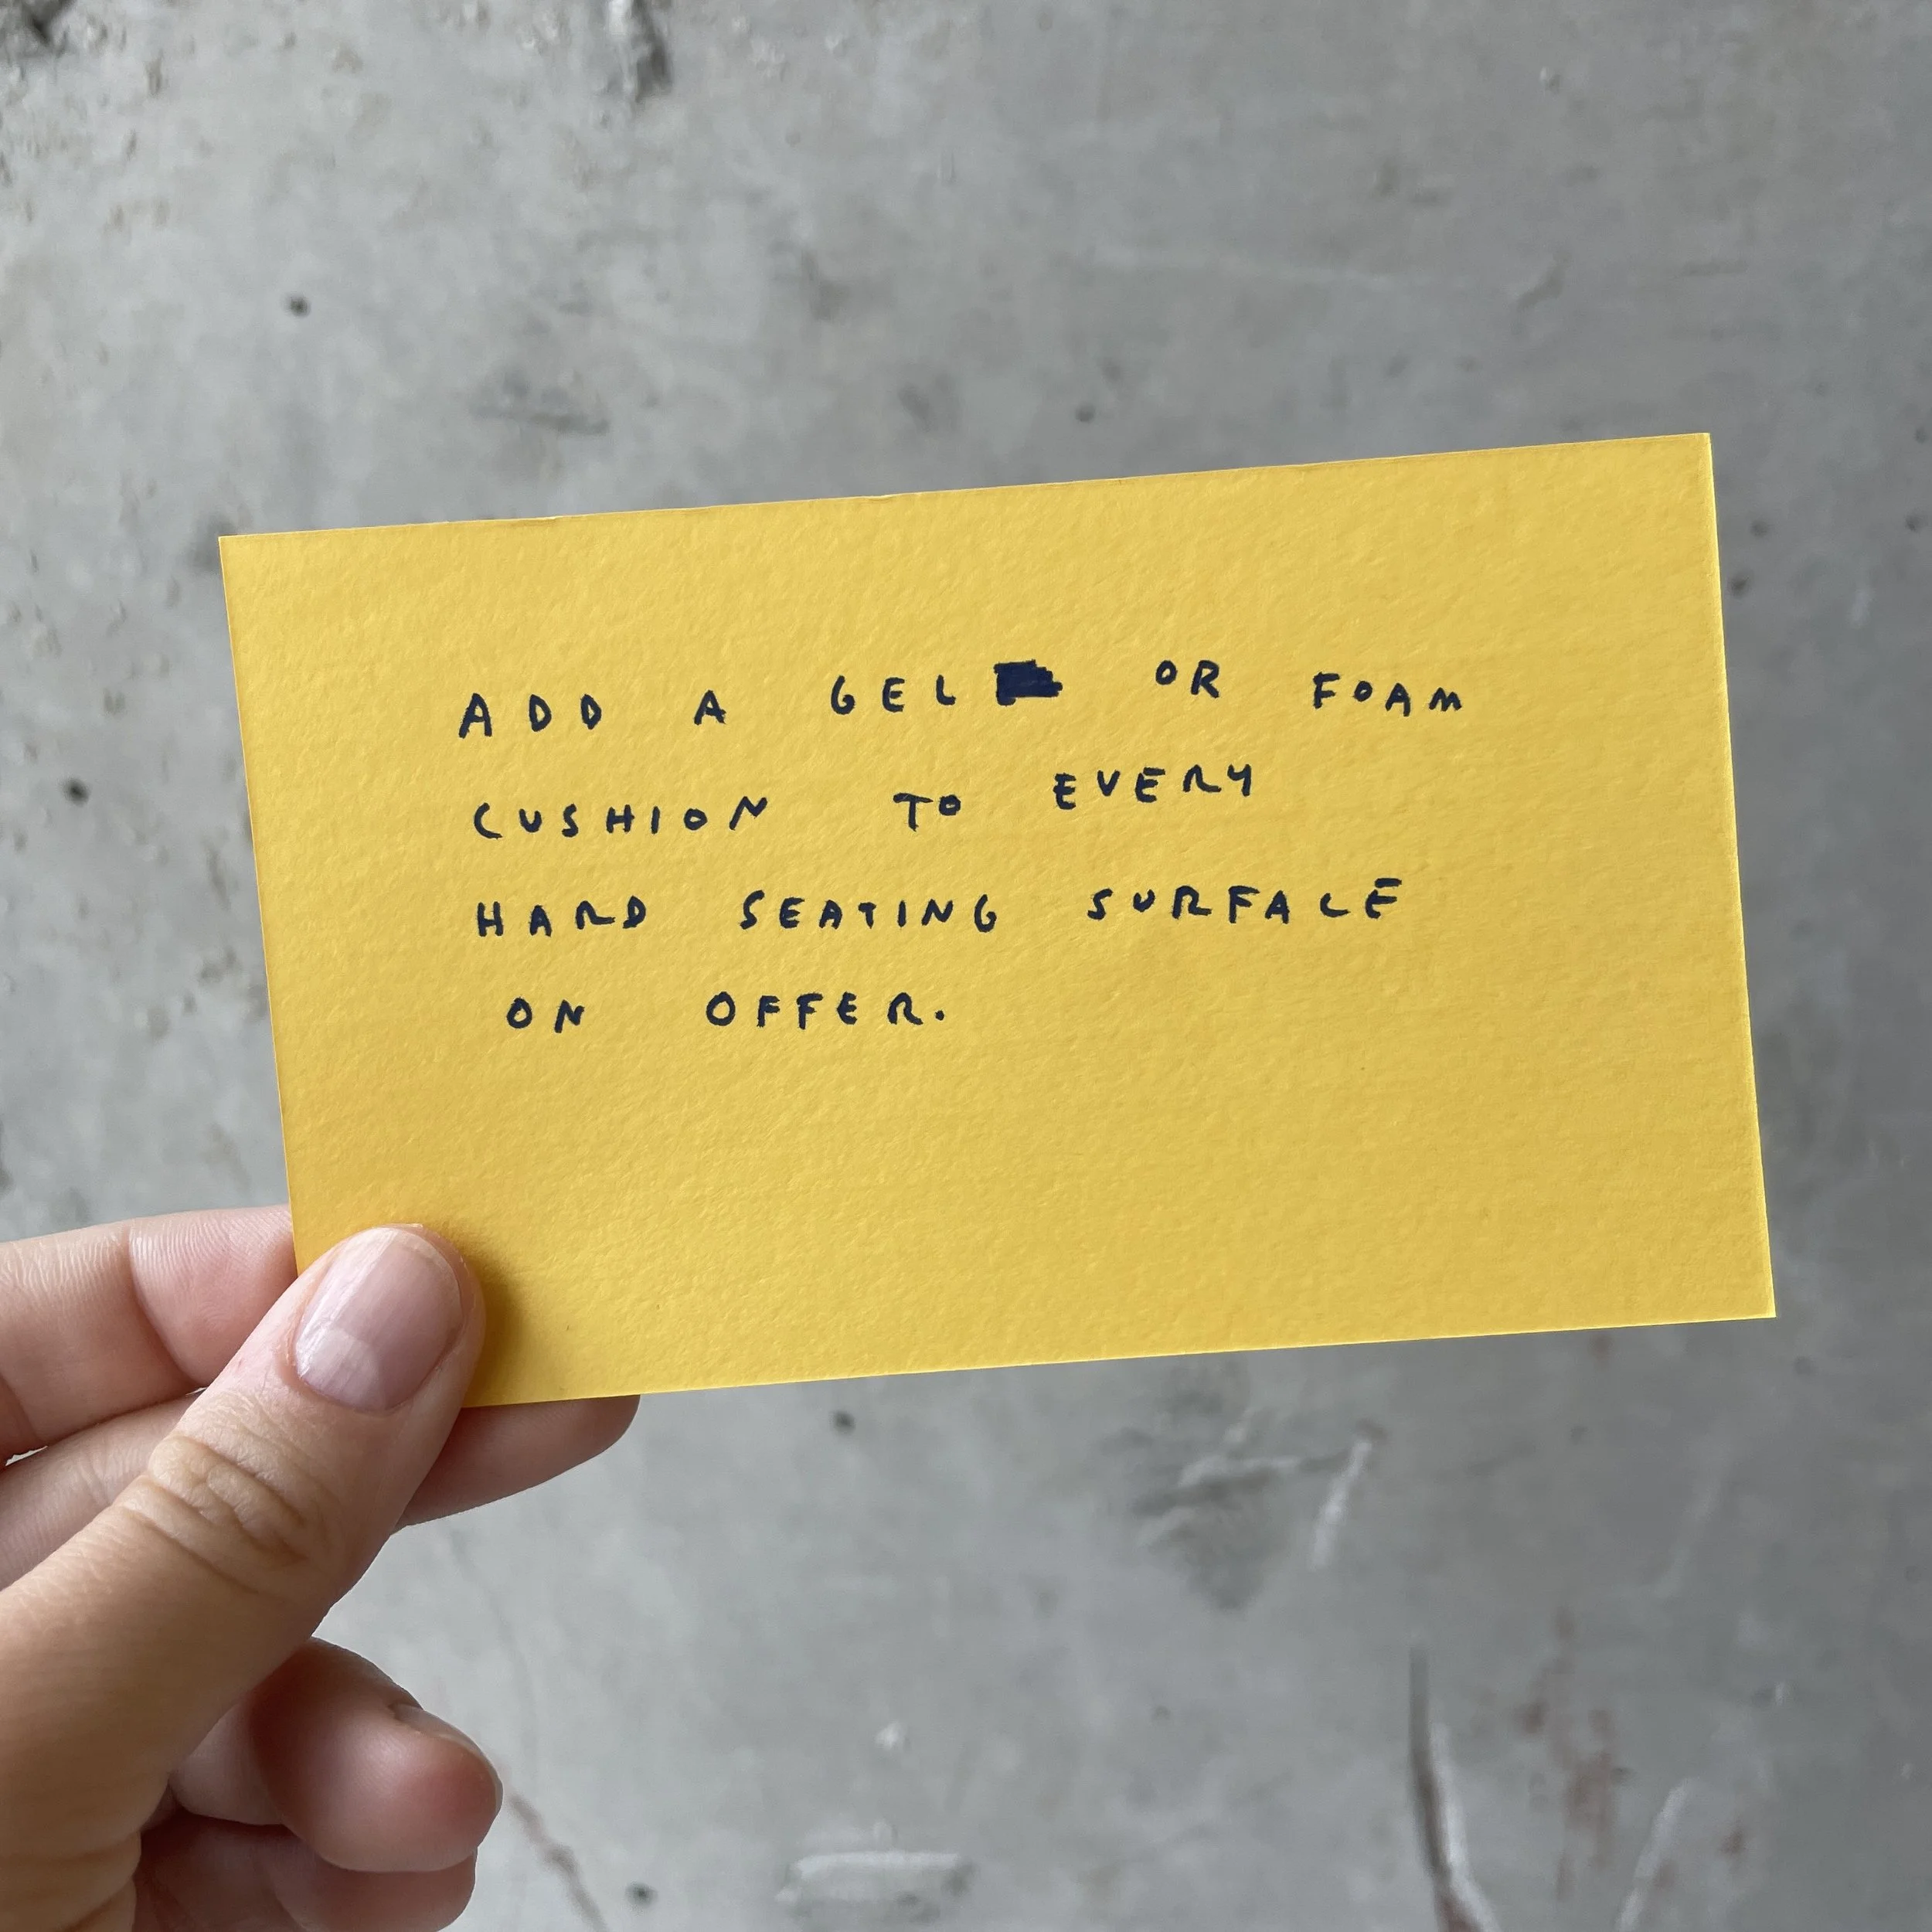 ADD A GEL OR FOAM
CUSHION TO EVERY
HARD SEATING SURFACE
ON OFFER.